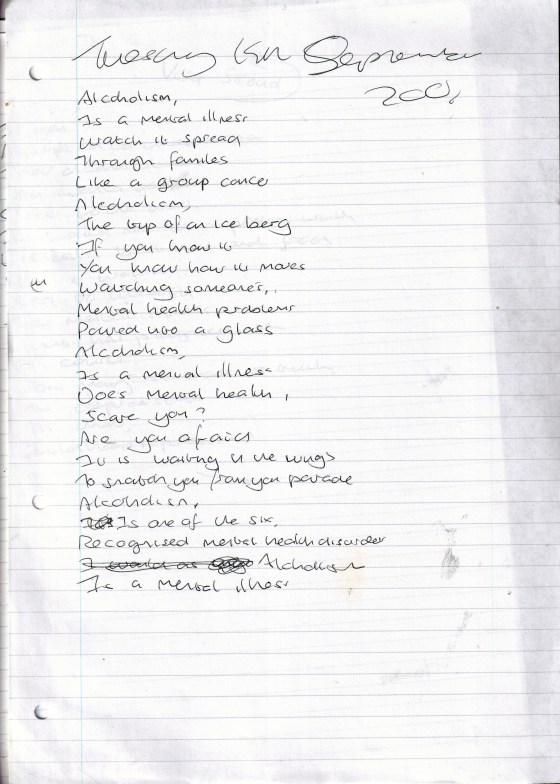 Tuesday September
Alcoholism,
Is a mental illness
Watch it spread
Through familes
Like a group cancer
Alcoholism,
The tip of an ice berg
If you know it
You know how it moves
Watching someone's,
Mental health problems
Poured into a glass
Alcoholism,
Is a mental illness
Does Mental health,
Scare you?
Are you afraid
It is waiting in the wings
To snatch you from you parade
Alcoholism,
Is one of the six,
Recognised mental health disorder
I would as Alcholism
Is a mental illness